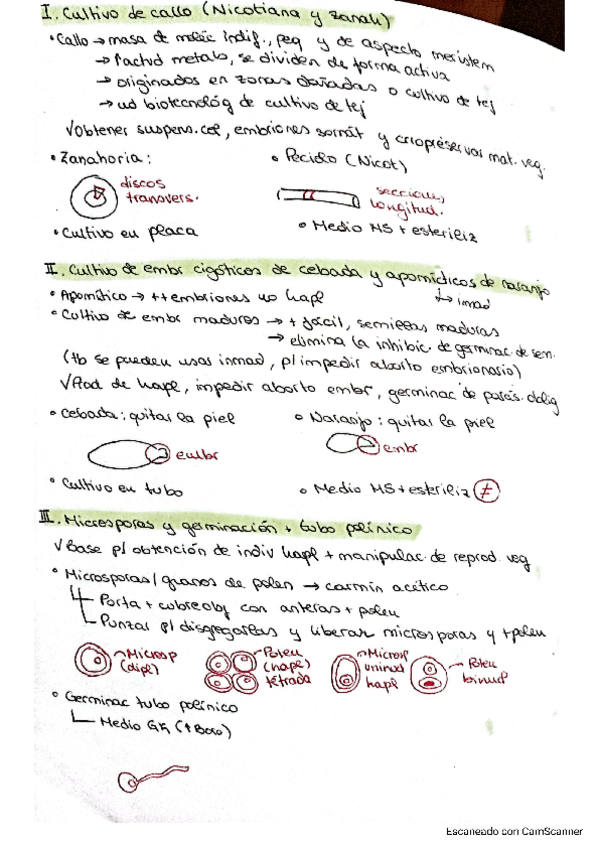 I. Cultivo de callo (Nicotiana y Zanah)
• Callo → masa de méric indif., peq y de aspecto meristem
→ ↑actud metab, se dividen de forma activa
→ originados en zonas dañadas o cultivo de tej
→ ud biotecnológ de cultivo de tej
√Obtener suspens. cel, embriones somát y criopreservar mat. veg.
• Zanahoria:
• Peciolo (Nicot)
discos transvers.
seccion, longitud.
• Cultivo en placa
• Medio MS + esteriliz
II. Cultivo de embr cigóticos de cebada y apomícticos de naranjo
• Apomítico → ++ embriones no hapl
↳ inmad
• Cultivo de embr maduros → + fácil, semillas maduras
→ elimina la inhibic. de germinac. de sem.
(tb se pueden usar inmad, p/ impedir aborto embrionario)
√Prod de hapl, impedir aborto embr, germinac de parás. oblig
• Cebada: quitar la piel
• Naranjo: quitar la piel
embr
embr
• Cultivo en tubo
• Medio MS + esteriliz ≠
III. Microsporas y germinación + tubo polínico
√Base p/ obtención de indiv hapl + manipulac. de reprod. veg
• Microsporas/granos de polen → carmín acético
Porta + cubreobj con anteras + polen
Punzar p/ disgregarlas y liberar microsporas y +polen
Microsp (dipl)
Polen (hapl) tétrada
Microsp uninucl hapl
Polen binucl
• Germinac tubo polínico
Medio GK (↑Boro)
Escaneado con CamScanner